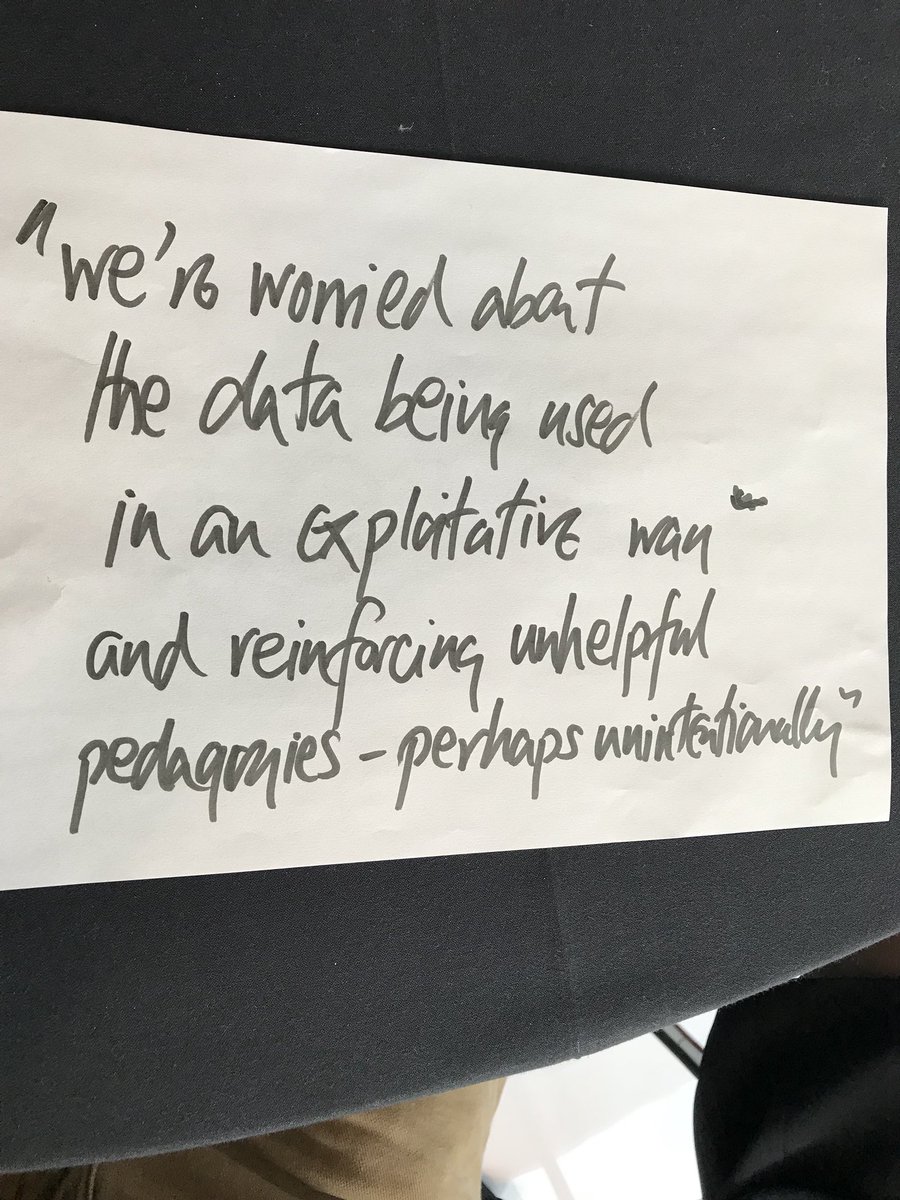 "we're worried about
the data being used
in an exploitative way
and reinforcing unhelpful
pedagogies - perhaps unintentionally"